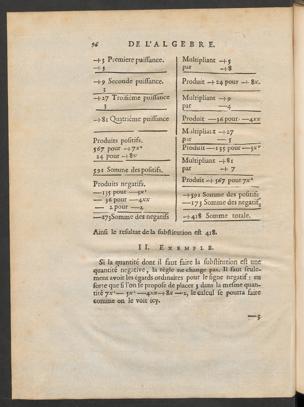 96 DE L'ALGEBRE.
+3 Premiere puissance.
+3
+9 Seconde puissance.
3
+27 Troisiéme puissance
3
+81 Quatriéme puissance
Produits positifs.
567 pour +7x⁴
24 pour +8x
591 Somme des positifs.
Produits negatifs.
—135 pour —5x³
— 36 pour —4xx
— 2 pour —2
—173 Somme des negatifs
Multipliant +3
par +8
Produit +24 pour +8x.
Multipliant +9
par —4
Produit —36 pour —4xx
Multipliant +27
par — 5
Produit —135 pour —5x³
Multipliant +81
par + 7
Produit +567 pour 7x⁴
+591 Somme des positifs
—173 Somme des negatifs
+418 Somme totale.
Ainsi le resultat de la substitution est 418.
II. EXEMPLE.
Si la quantité dont il faut faire la substitution est une
quantité negative, la régle ne change pas. Il faut seule-
ment avoir les égards ordinaires pour le signe negatif : en
sorte que si l'on se propose de placer 3 dans la même quan-
tité 7x⁴ — 5x³ —4xx+8x —2, le calcul se pourra faire
comme on le voit icy.
—3